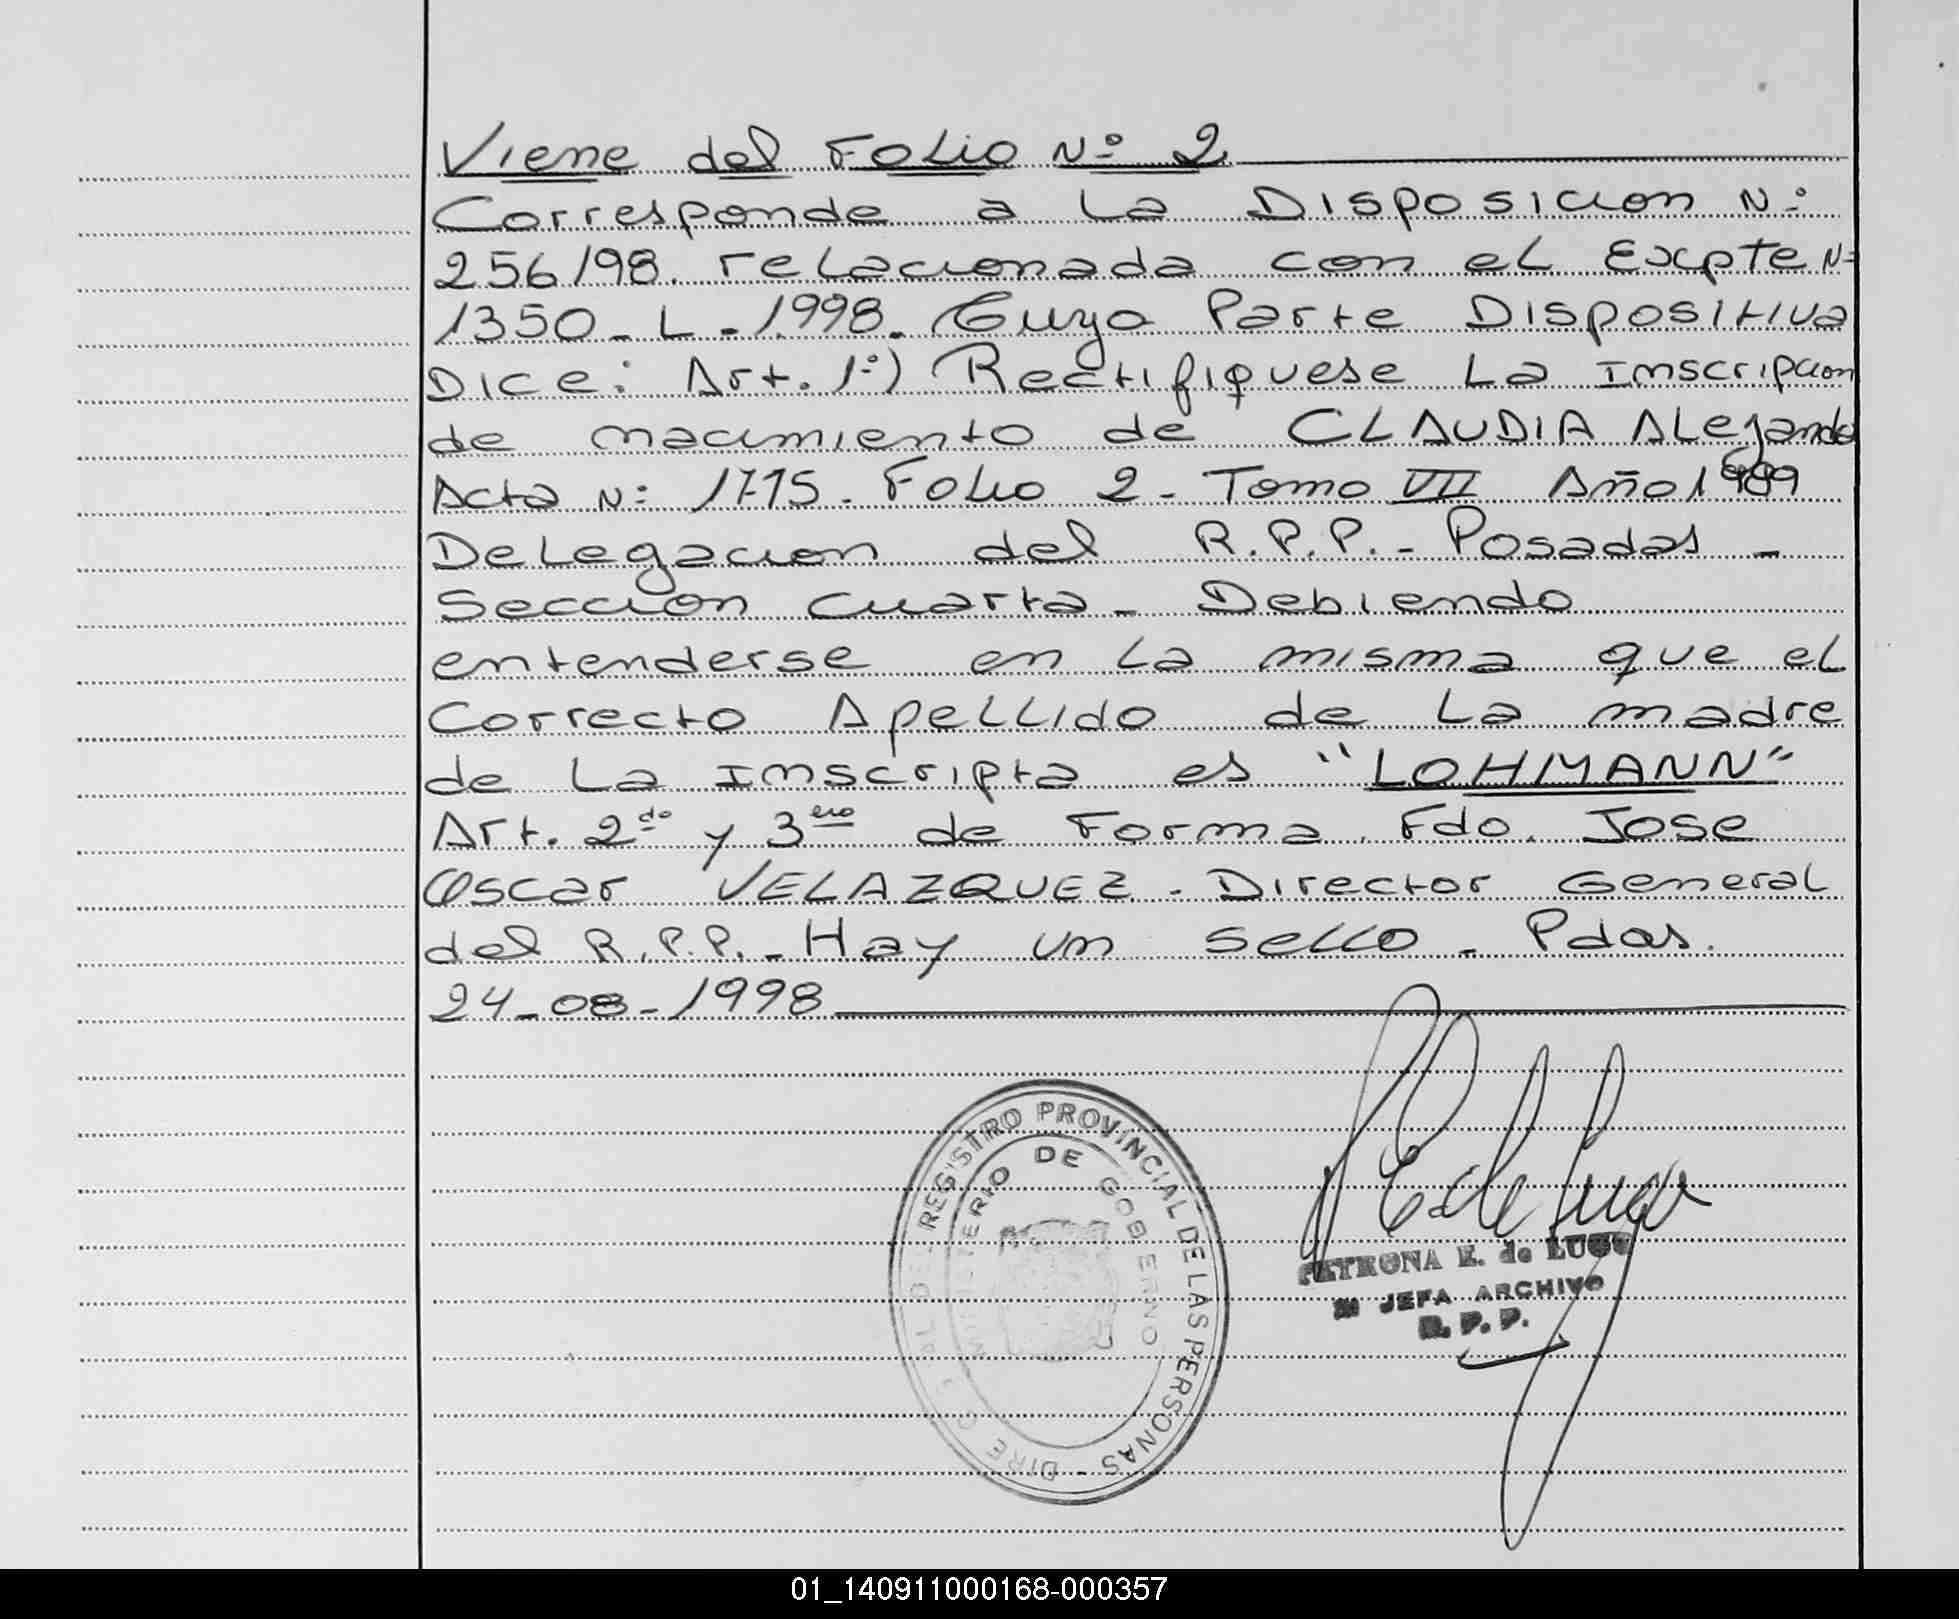 Viene del Folio Nº 2
Corresponde a La Disposicion Nº
256/98. relacionada con el Expte Nº
1350-L-1998. Cuya Parte Dispositiva
Dice: Art. 1º) Rectifiquese La Inscripcion
de nacimiento de CLAUDIA ALejandra
Acta Nº 1715. Folio 2- Tomo VII Año 1989
Delegacion del R.P.P.- Posadas -
Seccion Cuarta - Debiendo
entenderse en La misma que el
Correcto Apellido de La madre
de La Inscripta es "LOHMANN"
Art. 2do y 3ero de Forma. Fdo. Jose
Oscar VELAZQUEZ - Director General
del R.P.P. - Hay un sello - Pdas.
24-08-1998
DIRE G E AL DEL REGISTRO PROVINCIAL DE LAS PERSONAS -
MINISTERIO DE GOBIERNO
PETRONA E. de LUGO
JEFA ARCHIVO
R. P. P.
01_140911000168-000357